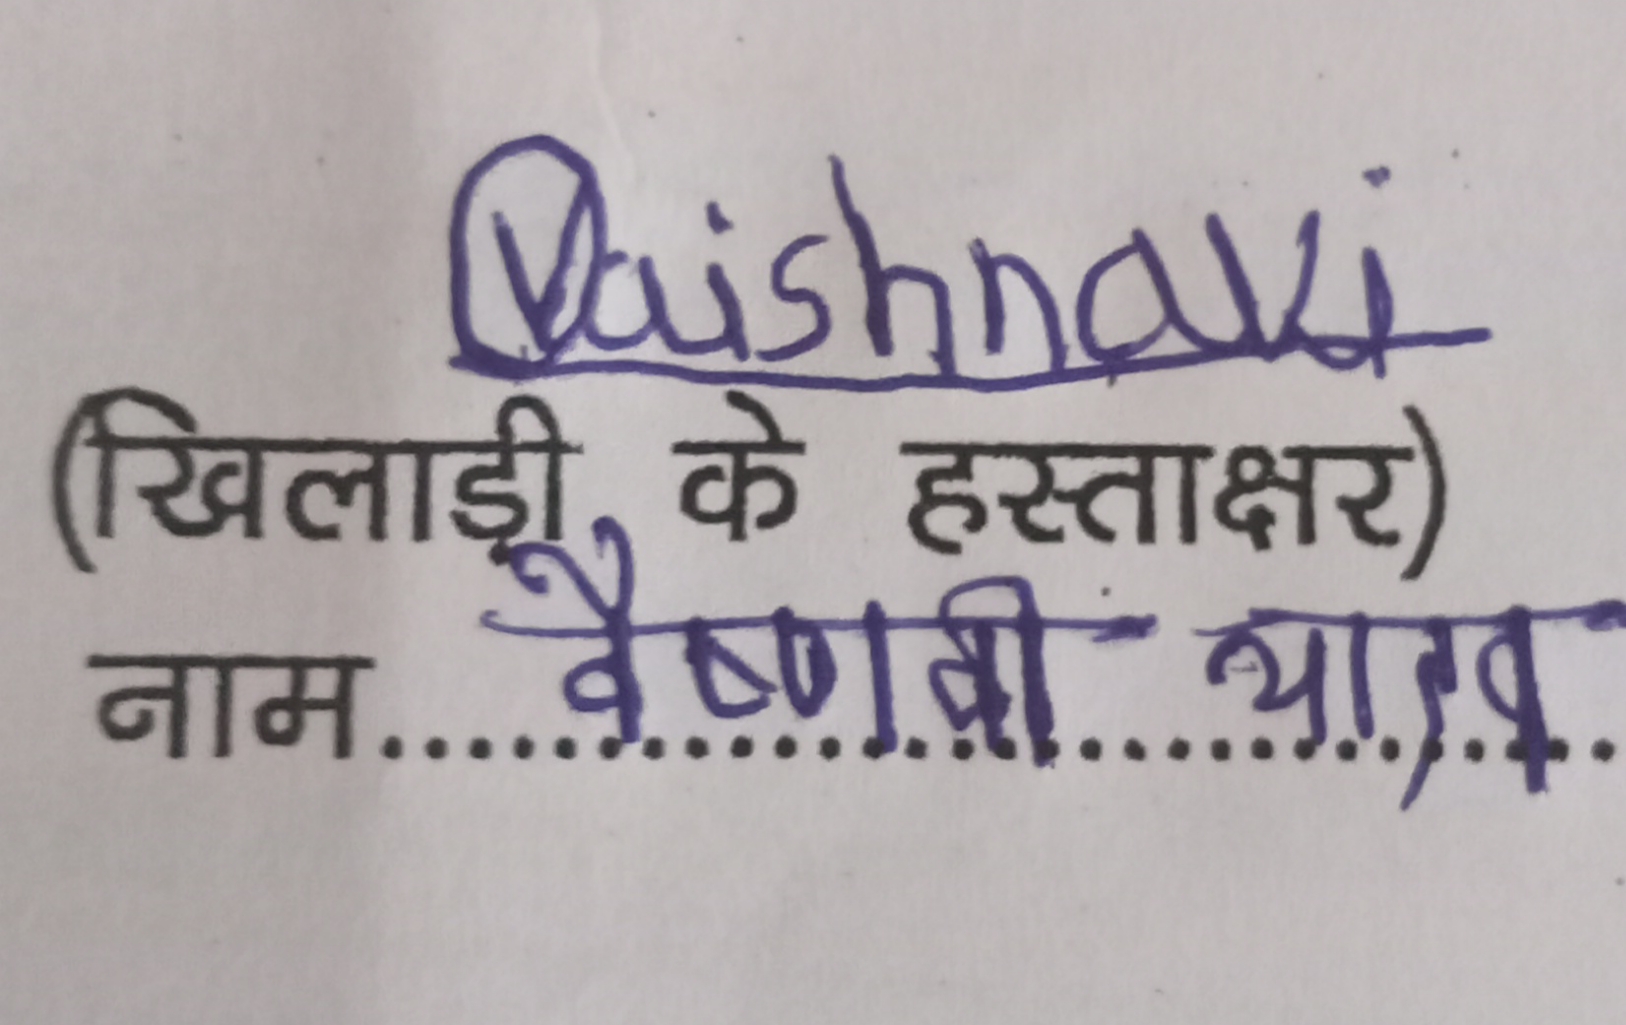 Vaishnavi
(खिलाड़ी के हस्ताक्षर)
नाम.......वैष्णवी यादव